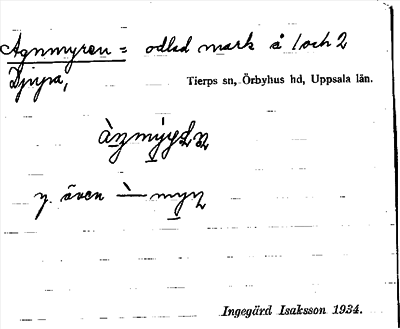 Agnmyren = odled mark å 1 och 2
Djupa,
Tierps sn, Örbyhus hd, Uppsala län.
y. även
Ingegärd Isaksson 1934.